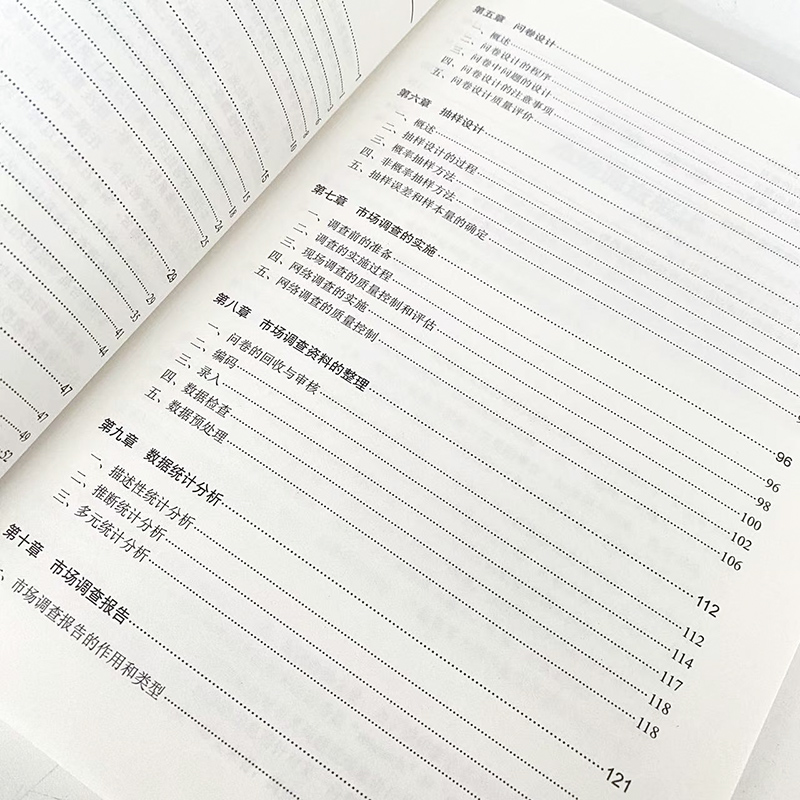 15
15
18
24
25
29
29
33
41
44
47
47
49
52
第五章 问卷设计
一、概述
二、问卷设计的程序
三、问卷中问题的设计
四、问卷设计的注意事项
五、问卷设计质量评价
第六章 抽样设计
一、概述
二、抽样设计的过程
三、概率抽样方法
四、非概率抽样方法
五、抽样误差和样本量的确定
第七章 市场调查的实施 96
一、调查前的准备 96
二、调查的实施过程 98
三、现场调查的质量控制和评估 100
四、网络调查的实施 102
五、网络调查的质量控制 106
第八章 市场调查资料的整理 112
一、问卷的回收与审核 112
二、编码 114
三、录入 117
四、数据检查 118
五、数据预处理 118
第九章 数据统计分析 121
一、描述性统计分析
二、推断统计分析
三、多元统计分析
第十章 市场调查报告
一、市场调查报告的作用和类型